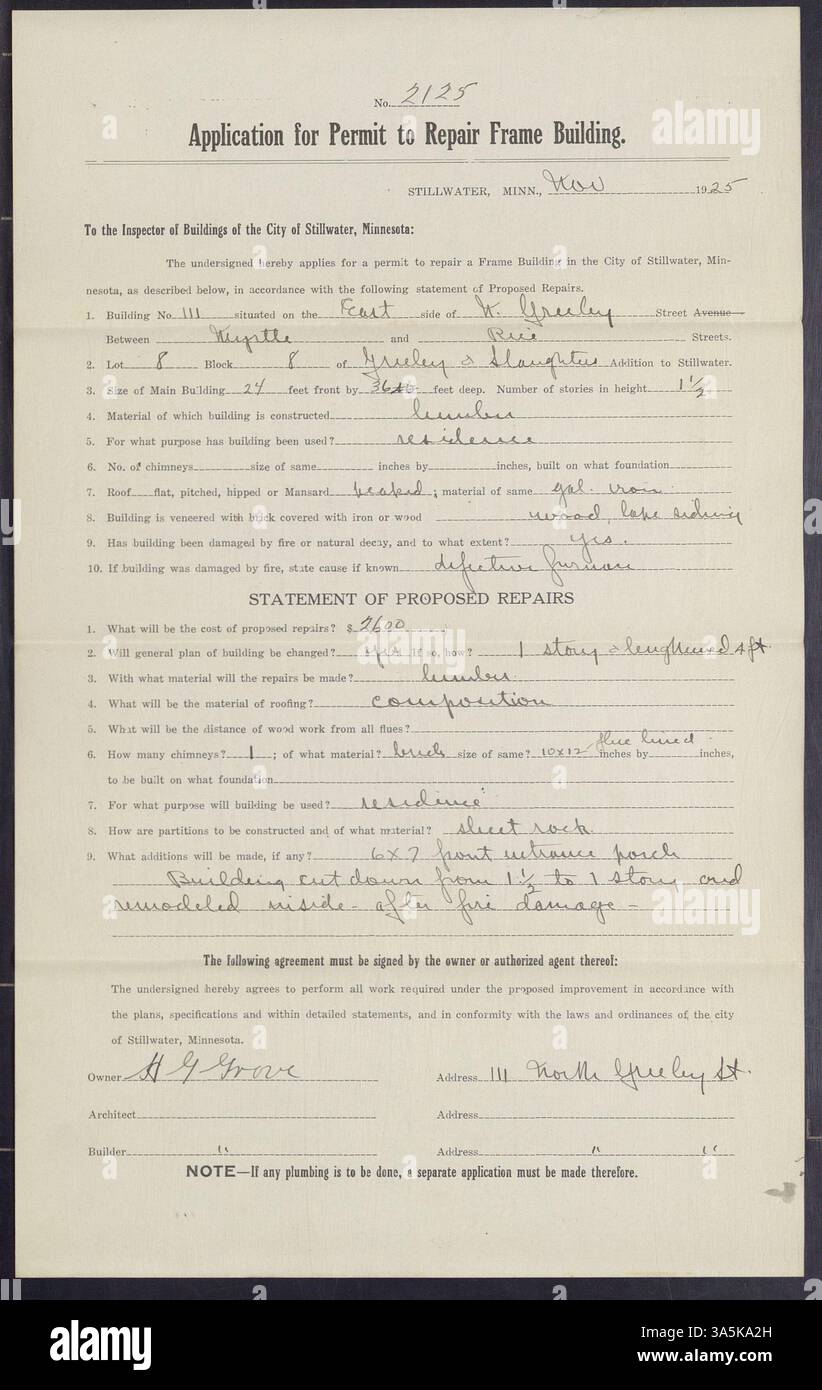 No. 2125
Application for Permit to Repair Frame Building.
STILLWATER, MINN., Nov 1925
To the Inspector of Buildings of the City of Stillwater, Minnesota:
The undersigned hereby applies for a permit to repair a Frame Building in the City of Stillwater, Min-
nesota, as described below, in accordance with the following statement of Proposed Repairs.
1. Building No 111 situated on the East side of N. Greeley Street Avenue
Between Myrtle and Rice Streets.
2. Lot 8 Block 8 of Greeley & Slaughters Addition to Stillwater.
3. Size of Main Building 24 feet front by 36 feet deep. Number of stories in height 1 1/2
4. Material of which building is constructed lumber
5. For what purpose has building been used? residence
6. No. of chimneys size of same inches by inches, built on what foundation
7. Roof flat, pitched, hipped or Mansard peaked; material of same gal. iron
8. Building is veneered with brick covered with iron or wood wood, lape sideing
9. Has building been damaged by fire or natural decay, and to what extent? yes.
10. If building was damaged by fire, state cause if known defective furnace
STATEMENT OF PROPOSED REPAIRS
1. What will be the cost of proposed repairs? $2600
2. Will general plan of building be changed? yes If so, how? 1 story & lenghtened 4 ft.
3. With what material will the repairs be made? lumber
4. What will be the material of roofing? composition
5. What will be the distance of wood work from all flues?
6. How many chimneys? 1; of what material? brick size of same? 10x12 flue lined inches by inches,
to be built on what foundation
7. For what purpose will building be used? residence
8. How are partitions to be constructed and of what material? sheet rock
9. What additions will be made, if any? 6x7 front entrance porch
Building cut down from 1 1/2 to 1 story and
remodeled inside - after fire damage -
The following agreement must be signed by the owner or authorized agent thereof:
The undersigned hereby agrees to perform all work required under the proposed improvement in accordance with
the plans, specifications and within detailed statements, and in conformity with the laws and ordinances of the city
of Stillwater, Minnesota.
Owner H G Grove Address 111 North Greeley St.
Architect Address
Builder " Address " "
NOTE—If any plumbing is to be done, a separate application must be made therefore.
alamy
Image ID: 3A5KA2H
www.alamy.com